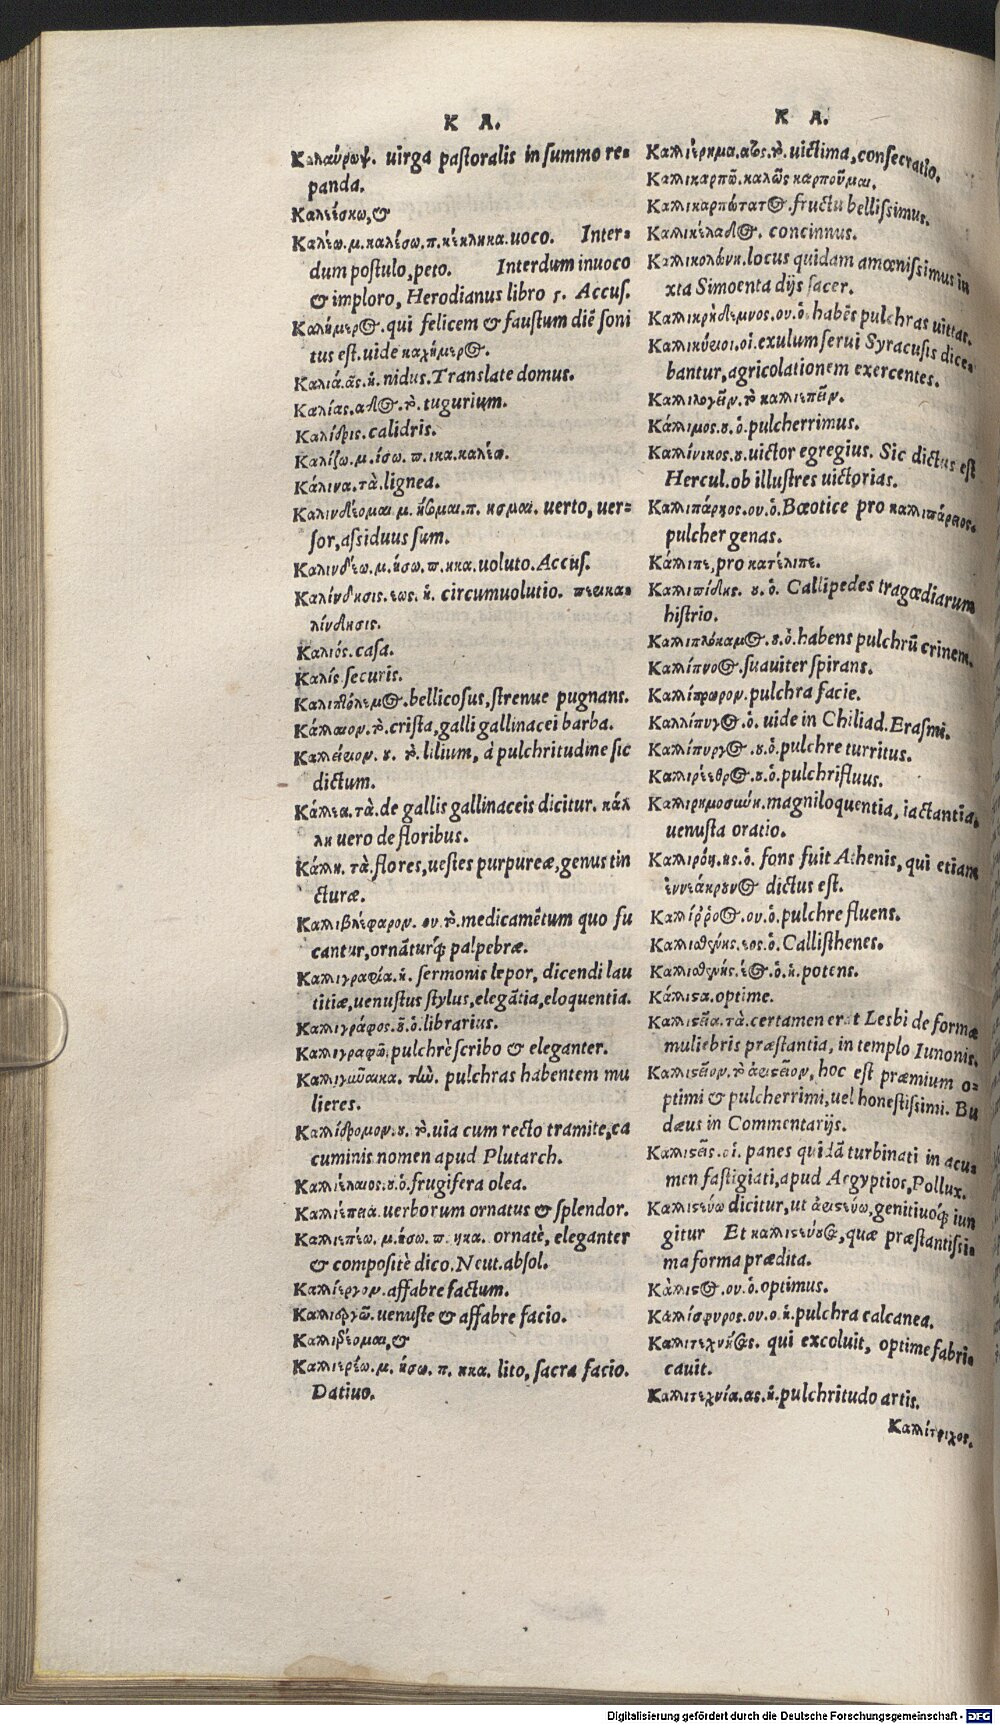 Κ Α.
Καλαύρωψ. uirga pastoralis in summo re-
panda.
Καλέσκω, &
Καλέω. μ. καλέσω. π. κέκληκα. uoco. Inter-
dum postulo, peto. Interdum inuoco
& imploro, Herodianus libro 5. Accus.
Καλήμερος. qui felicem & faustum diē soni
tus est. uide καλήμερος.
Καλιά. ᾶς. ἡ. nidus. Translate domus.
Καλίας. αδος. τὸ. tugurium.
Καλίδρις. calidris.
Καλίζω. μ. ίσω. π. ικα. καλέω.
Κάλινα. τὰ. lignea.
Καλινδέομαι μ. ήσομαι. π. ημαι. uerto, uer-
sor, assiduus sum.
Καλινδέω. μ. ήσω. π. ηκα. uoluto. Accus.
Καλίνδησις. εως. ἡ. circumuolutio. περικα-
λίνδησις.
Καλιός. casa.
Καλίς securis.
Καλιπτόλεμος. bellicosus, strenue pugnans.
Κάλλαιον. τὸ. crista, galli gallinacei barba.
Καλλείριον. ου. τὸ. lilium, à pulchritudine sic
dictum.
Κάλλεα. τὰ. de gallis gallinaceis dicitur. κάλ
λη uero de floribus.
Κάλλη. τὰ. flores, uestes purpureæ, genus tin
cturæ.
Καλλιβλέφαρον. ου. τὸ. medicamētum quo fu
cantur, ornāturq́; palpebræ.
Καλλιγραφία. ἡ. sermonis lepor, dicendi lau
titiæ, uenustus stylus, elegātia, eloquentia.
Καλλιγράφος. ου. ὁ. librarius.
Καλλιγραφῶ. pulchrè scribo & eleganter.
Καλλιγύναικα. τὴν. pulchras habentem mu
lieres.
Καλλίδρομον. ου. τὸ. uia cum recto tramite, ca
cuminis nomen apud Plutarch.
Καλλιέλαιος. ου. ὁ. frugifera olea.
Καλλιέπεια. uerborum ornatus & splendor.
Καλλιεπέω. μ. ήσω. π. ηκα. ornatè, eleganter
& compositè dico. Neut. absol.
Καλλίεργον. affabre factum.
Καλλιεργῶ. uenuste & affabre facio.
Καλλιερέομαι, &
Καλλιερέω. μ. ήσω. π. ηκα. lito, sacra facio.
Datiuo.
Κ Α.
Καλλιέρημα. ατος. τὸ. uictima, consecratio.
Καλλικαρπῶ. καλῶς καρποῦμαι.
Καλλικαρπότατος. fructu bellissimus.
Καλλικέλαδος. concinnus.
Καλλικολώνη. locus quidam amœnissimus iu
xta Simoenta dijs sacer.
Καλλικρήδεμνος. ου. ὁ. habēs pulchras uittas.
Καλλικύριοι. οἱ. exulum serui Syracusis dice-
bantur, agricolationem exercentes.
Καλλιλογεῖν. τὸ καλλιεπεῖν.
Κάλλιμος. ου. ὁ. pulcherrimus.
Καλλίνικος. ου. uictor egregius. Sic dictus est
Hercul. ob illustres uictorias.
Καλλιπάρηος. ου. ὁ. Bœotice pro καλλιπάρειος.
pulcher genas.
Κάλλιπε, pro κατέλιπε.
Καλλιπίδης. ου. ὁ. Callipedes tragœdiarum
histrio.
Καλλιπλόκαμος. ου. ὁ. habens pulchrū crinem.
Καλλίπνοος. suauiter spirans.
Καλλίπρωρον. pulchra facie.
Καλλίπυγος. ὁ. uide in Chiliad. Erasmi.
Καλλίπυργος. ου. ὁ. pulchre turritus.
Καλλιρέεθρος. ου. ὁ. pulchrifluus.
Καλλιρημοσύνη. magniloquentia, iactantia,
uenusta oratio.
Καλλιρόη. ης. ὁ. fons fuit Athenis, qui etiam
ἐννεάκρουνος dictus est.
Καλλίῤῥοος. ου. ὁ. pulchre fluens.
Καλλισθένης. εος. ὁ. Callisthenes.
Καλλισθενής. έος. ὁ. ἡ. potens.
Κάλλιστα. optime.
Καλλιστεῖα. τὰ. certamen erat Lesbi de formæ
muliebris præstantia, in templo Iunonis.
Καλλιστεῖον. τὸ ἀριστεῖον, hoc est præmium o-
ptimi & pulcherrimi, uel honestissimi. Bu
dæus in Commentarijs.
Καλλιστεῖς. οἱ. panes quidā turbinati in acu-
men fastigiati, apud Aegyptios, Pollux.
Καλλιστεύω dicitur, ut ἀριστεύω, genitiuoq́; iun
gitur Et καλλιστεύουσα, quæ præstantissi-
ma forma prædita.
Κάλλιστος. ου. ὁ. optimus.
Καλλίσφυρος. ου. ο. ἡ. pulchra calcanea.
Καλλιτεχνήσας. qui excoluit, optime fabri-
cauit.
Καλλιτεχνία. ας. ἡ. pulchritudo artis.
Καλλίτριχος.
Digitalisierung gefördert durch die Deutsche Forschungsgemeinschaft - DFG